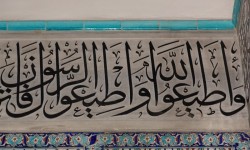 وأطيعوا الله وأطيعوا الرسول